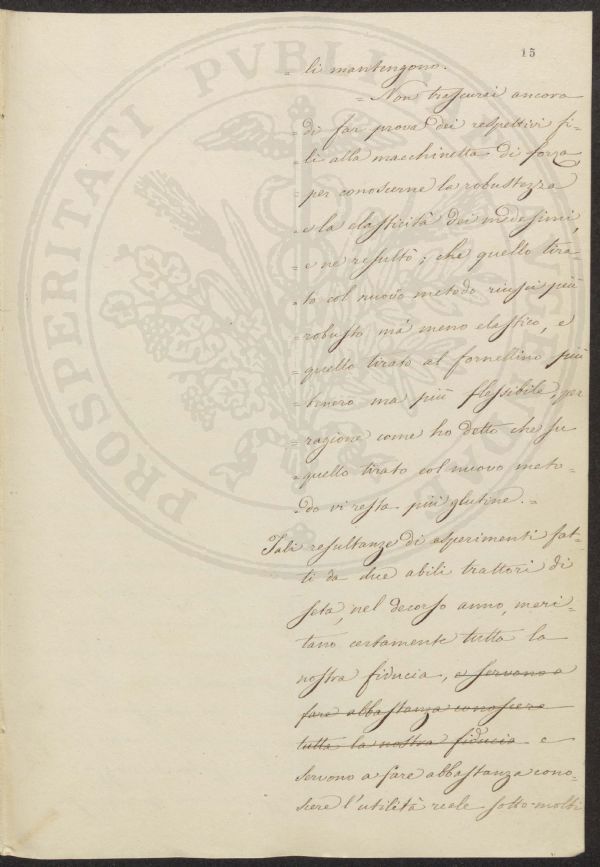 15
= li mantengono.
= Non trascurai ancora
= di far prova dei respettivi fi-
= li alla macchinetta di forza,
= per conoscerne la robustezza
= e la elasticità dei medesimi,
= e ne resultò; che quello tira-
= to col nuovo metodo riuscì più
= robusto mà meno elastico, e
= quello tirato al fornellino più
= tenero ma più flessibile, per
= ragione come ho detto che su
= quello tirato col nuovo meto-
= do vi resta più glutine. =
Tali resultanze di esperimenti fat-
ti da due abili trattori di
seta, nel decorso anno, meri-
tano certamente tutta la
nostra fiducia, e servono a
fare abbastanza conoscere
tutta la nostra fiducia e
servono a fare abbastanza cono-
scere l'utilità reale sotto molti
PROSPERITATI PVBLICAE